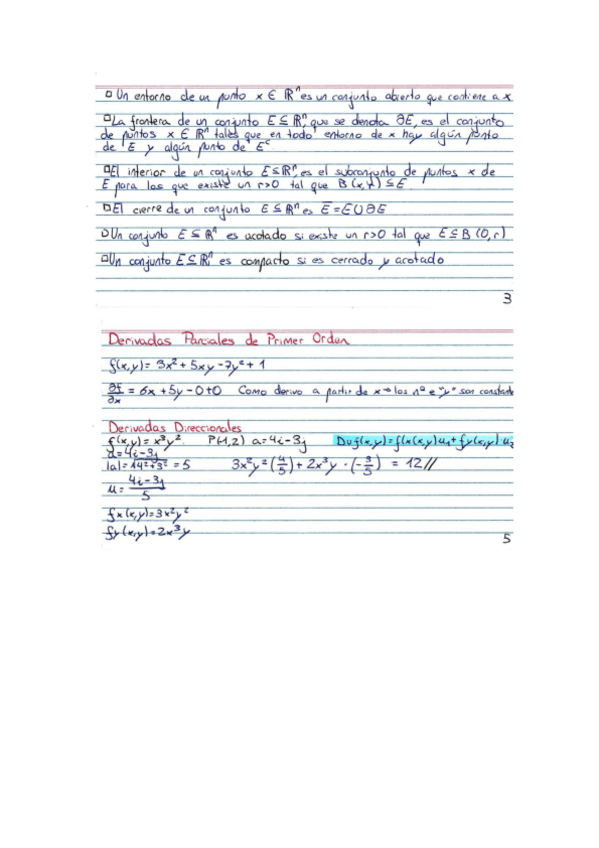 □ Un entorno de un punto x ∈ ℝⁿ es un conjunto abierto que contiene a x
□ La frontera de un conjunto E ⊆ ℝⁿ, que se denota ∂E, es el conjunto
de puntos x ∈ ℝⁿ tales que en todo entorno de x hay algún punto
de E y algún punto de Eᶜ
□ El interior de un conjunto E ⊆ ℝⁿ, es el subconjunto de puntos x de
E para los que existe un r>0 tal que B(x,r) ⊆ E
□ El cierre de un conjunto E ⊆ ℝⁿ es E̅ = E ∪ ∂E
□ Un conjunto E ⊆ ℝⁿ es acotado si existe un r>0 tal que E ⊆ B(0,r)
□ Un conjunto E ⊆ ℝⁿ, es compacto si es cerrado y acotado
3
Derivadas Parciales de Primer Orden
f(x,y) = 3x² + 5xy - 7y² + 1
∂f/∂x = 6x + 5y - 0 + 0 Como derivo a partir de x → los nº e "y" son constante
Derivadas Direccionales
f(x,y) = x³y² P(-1,2) a = 4i - 3j Duf(x,y) = f(x(x,y)u₁ + fy(x,y)·u₂
a = 4i - 3j
|a| = √4² + 3² = 5 3x²y²(4/5) + 2x³y · (-3/5) = 12//
u = 4i - 3j / 5
fx(x,y) = 3x²y²
fy(x,y) = 2x³y
5